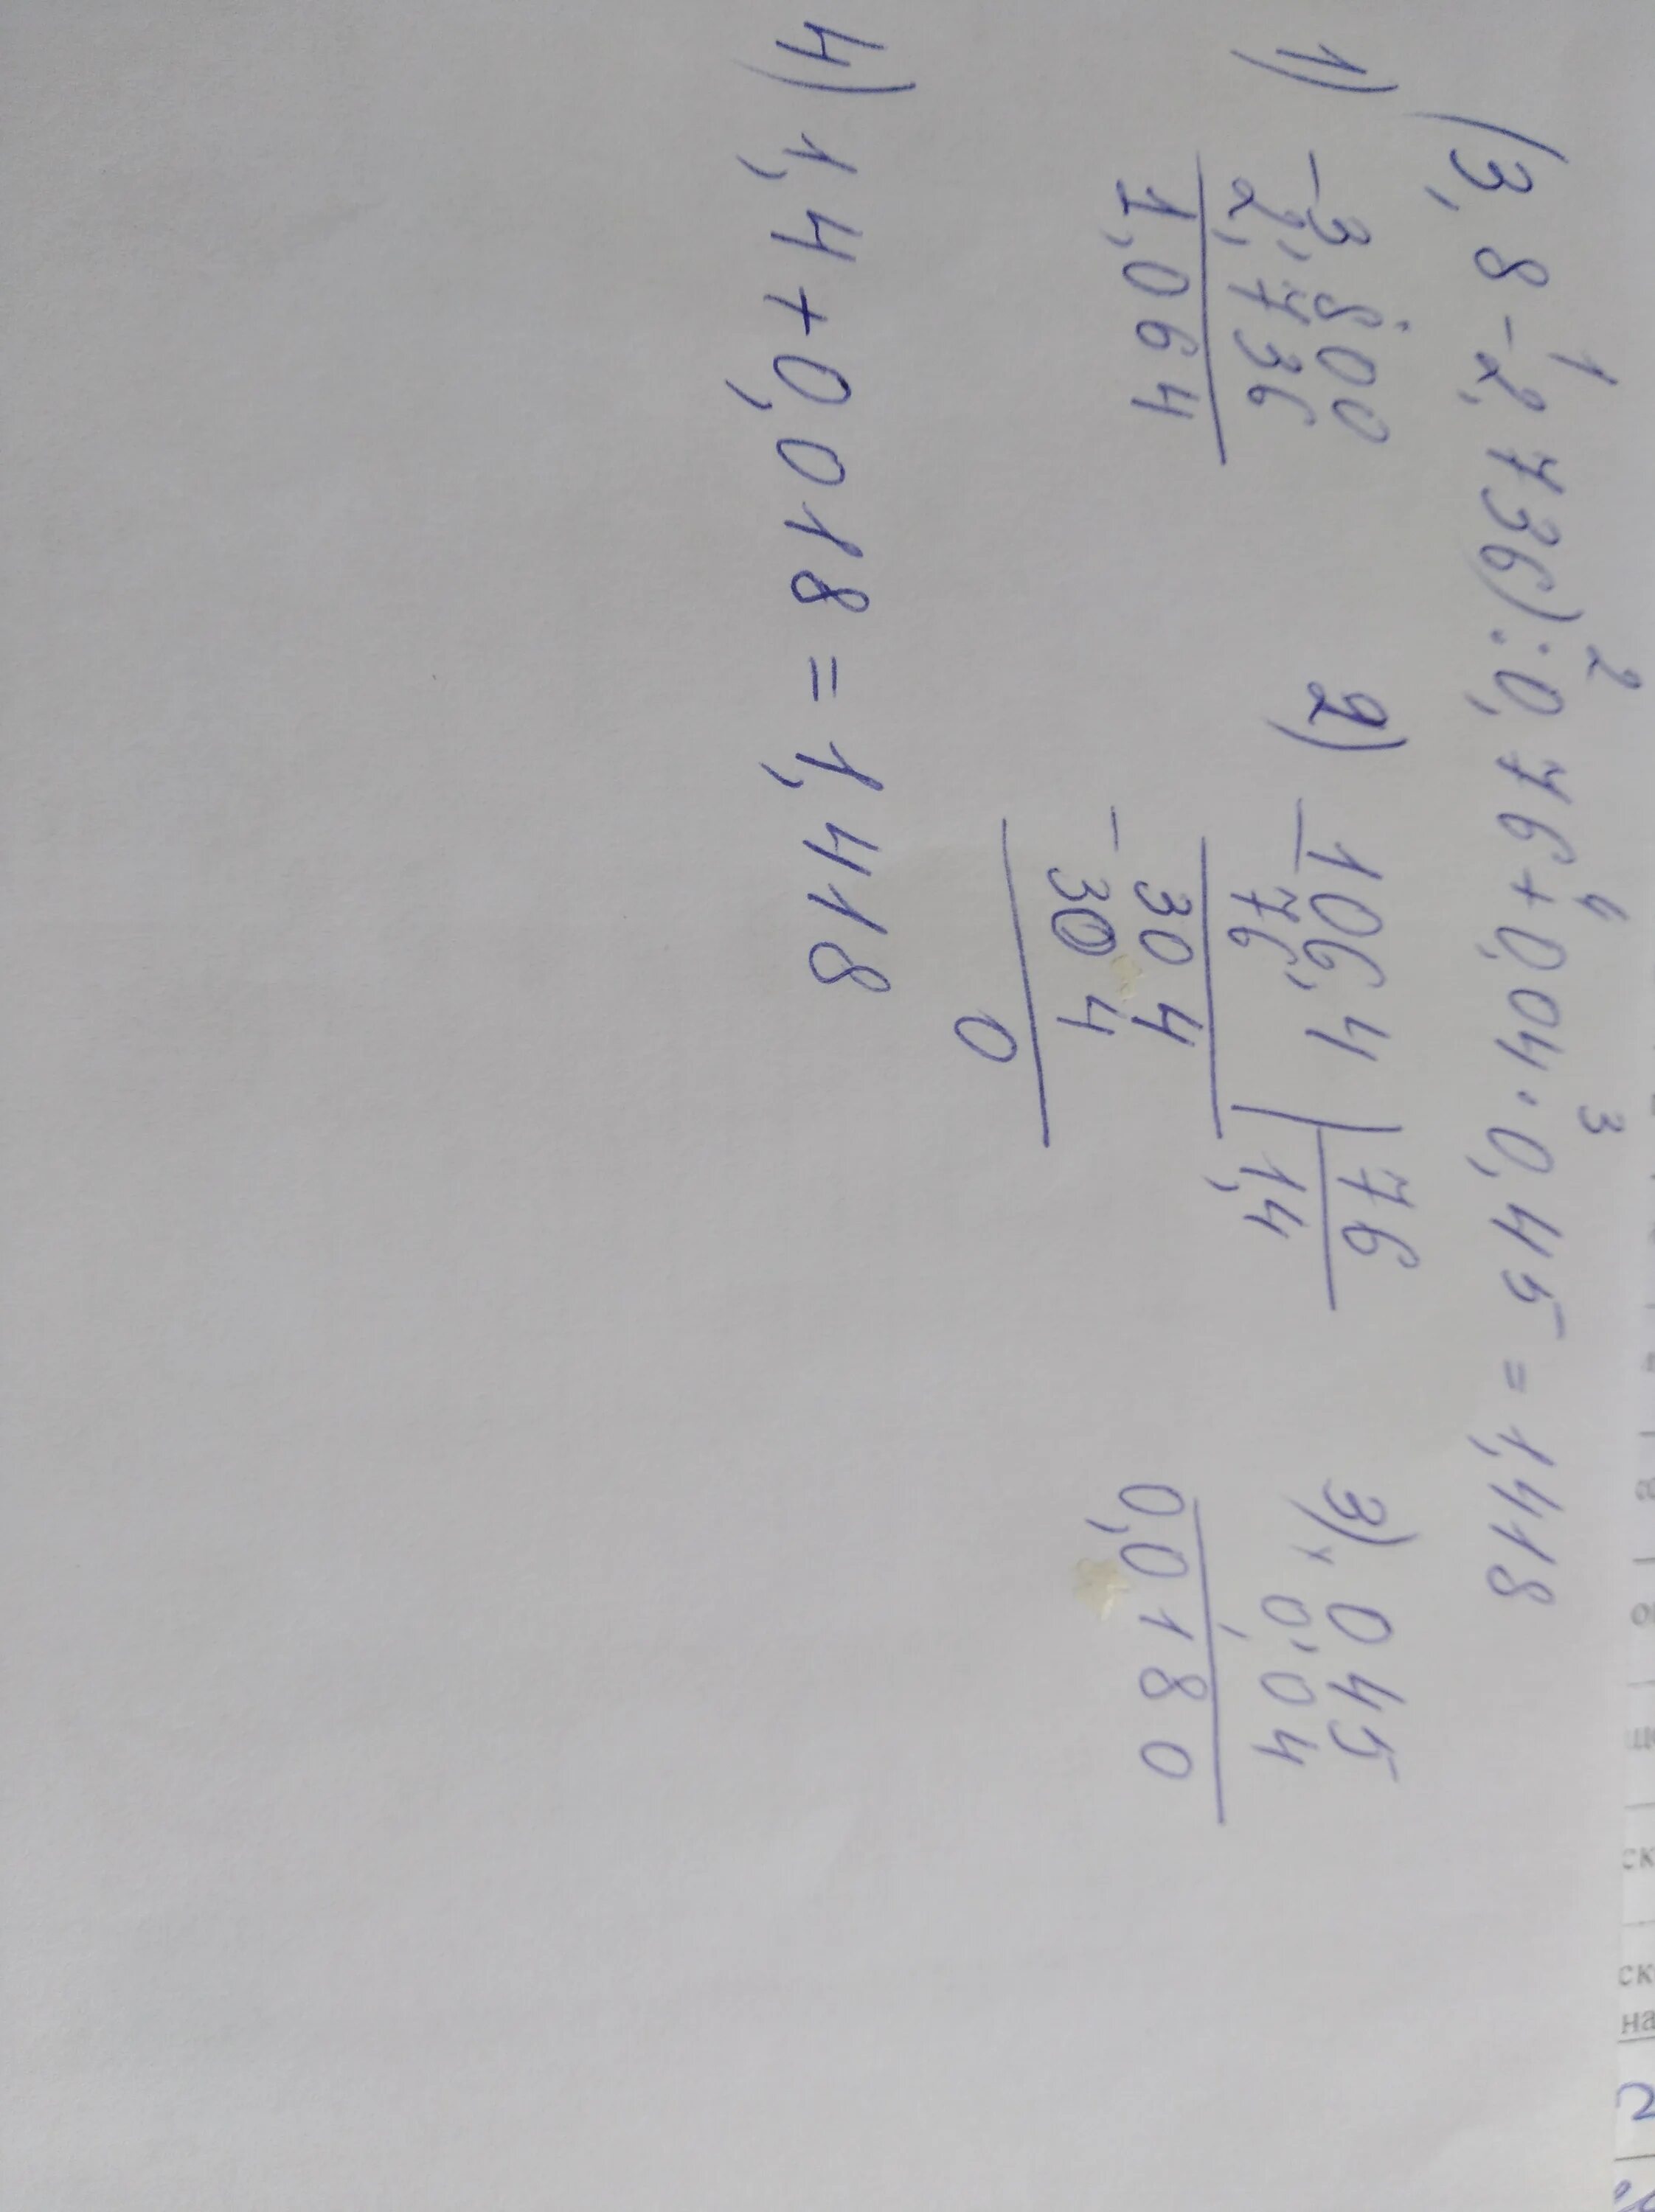 (3,8-2,736):0,76+0,04·0,45=1,418
1 2 4 3
1) -3,800
2,736
1,064
2) -106,4 | 76
76 1,4
30 4
-30 4
0
3) × 0 45
0,04
0,0180
4) 1,4+0,018=1,418
ск
ск
на
2